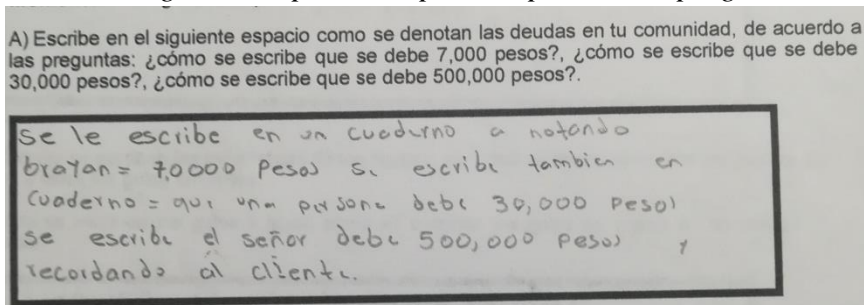 A) Escribe en el siguiente espacio como se denotan las deudas en tu comunidad, de acuerdo a
las preguntas: ¿cómo se escribe que se debe 7,000 pesos?, ¿cómo se escribe que se debe
30,000 pesos?, ¿cómo se escribe que se debe 500,000 pesos?.
Se le escribe en un cuaderno a notando
brayan = 7,0000 Pesos se escribe tambien en
Cuaderno = que una persona debe 30,000 pesos
se escribe el señor debe 500,000 pesos y
recordando al cliente.